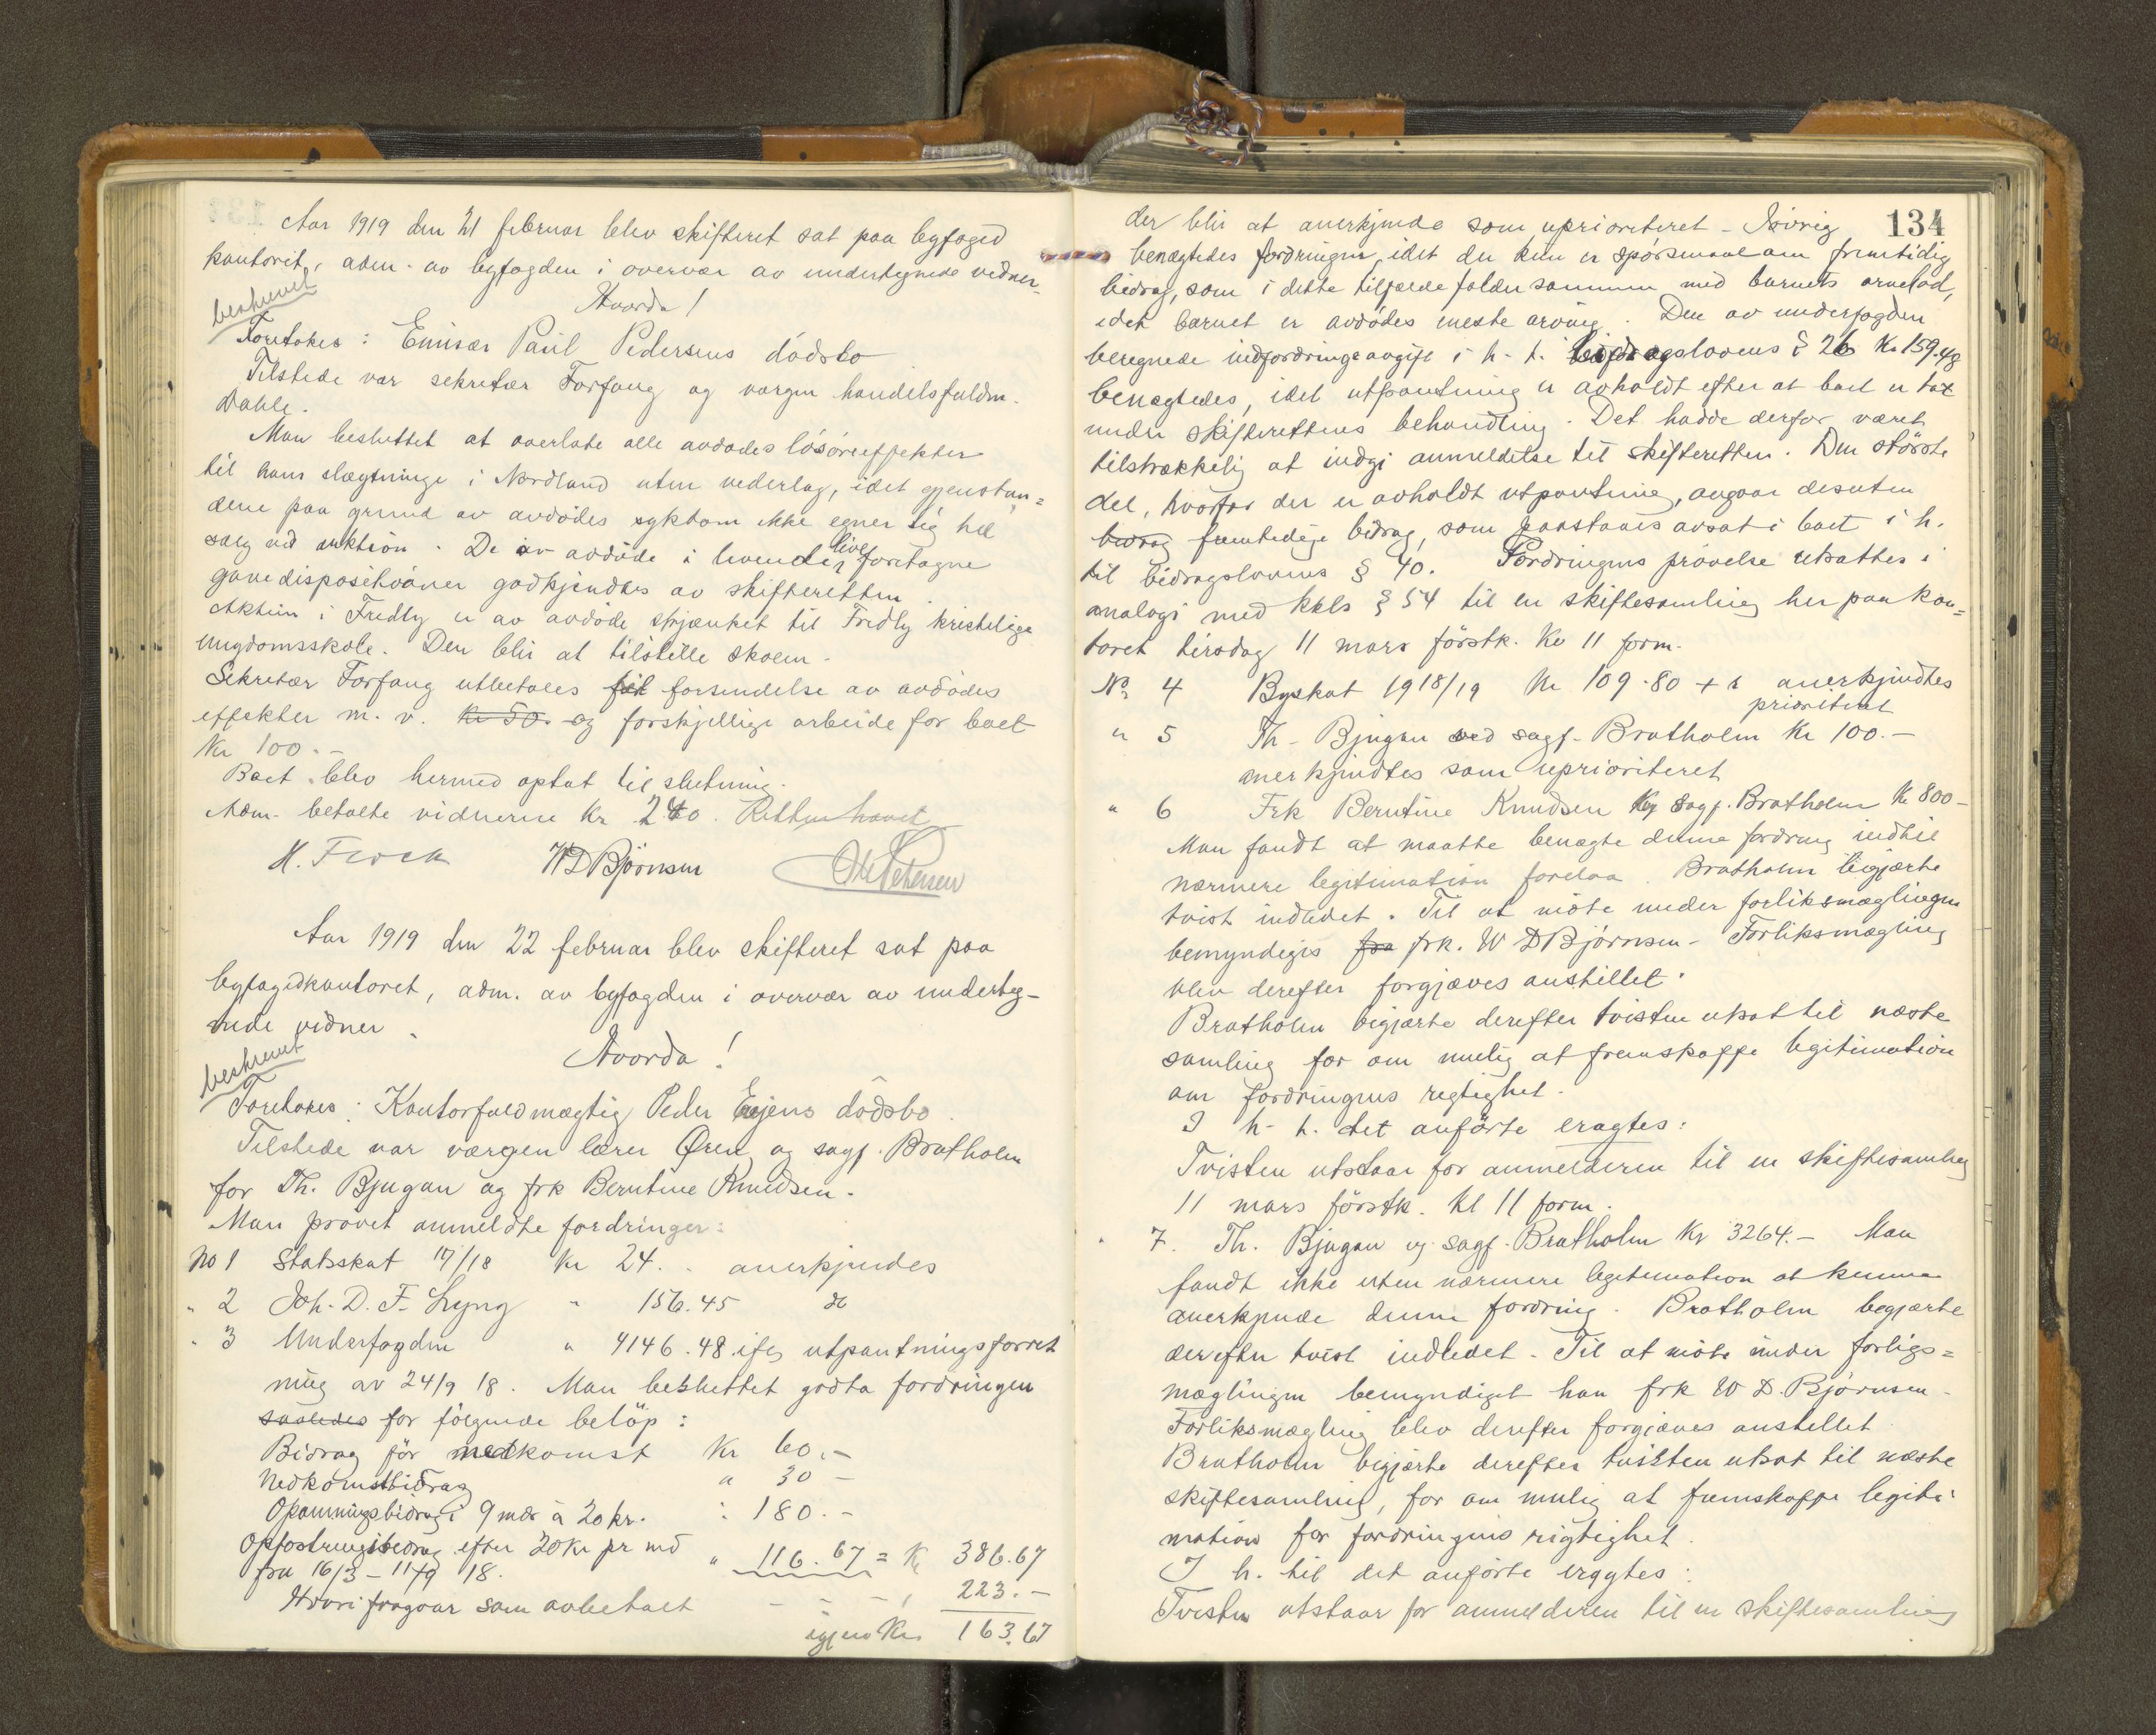 Aar 1919 den 21 februar blev skifteret sat paa byfoged
kontoret, adm. av byfogden i overvær av undertegnede vidner.
beskrevet
Hvorda!
Foretokes: Emisær Paul Pedersens dödsbo
Tilstede var sekretær Forfang og vergen handelsfuldm.
Dahle.
Man besluttet at overlate alle avdødes lösöreeffekter
til hans slægtninge i Nordland uten vederlag, idet gjenstan=
dene paa grund av avdödes sykdom ikke egner sig til
salg ved auktion. De av avdöde i levende live foretagne
gavedispositioner godkjendtes av skifteretten.
Aktien i Fredly er av avdöde skjænket til Fredly kristelige
ungdomsskole. Den blir at tilstille skolen.
Sekretær Forfang utbetales for forsendelse av avdödes
effekter m.v. Kr 50. og forskjellige arbeide for boet
Kr 100.-
Boet blev hermed optat til slutning.
Adm. betalte vidnerne Kr 2.40. Retten hævet
H. Finch W D Björnsen O Petersen
Aar 1919 den 22 februar blev skifteret sat paa
byfogedkontoret, adm. av byfogden i overvær av underteg-
nede vidner.
beskrevet
Hvorda!
Foretokes: Kontorfuldmægtig Peder Eujens dödsbo.
Tilstede var vergen lærer Øren og sagf. Bratholm
for Th. Bjugan og frk Berntine Knudsen.
Man prövet anmeldte fordringer:
No 1 Statsskat 17/18 Kr 24. - anerkjendes
" 2 Joh. D. F. Lyng " 156.45 do
" 3 Underfogden " 4146.48 ifg utpantningsforret
ning av 24/9 18. Man besluttet godta fordringen
saaledes for fölgende belöp:
Bidrag för nedkomst Kr 60.-
Nedkomstbidrag " 30 -
Opamningsbidrag i 9 mdr à 20 kr. : 180.-
Opfostringsbidrag efter 20 Kr pr md " 116.67 = Kr 386.67
fra 16/3 - 11/9 18.
Hvori fragaar som avbetalt - - - , 223.-
igjen Kr 163.67
134
der blir at anerkjende som uprioriteret - Iövrig
benægtedes fordringen, idet der kun er spörsmaal om fremtidig
bidrag, som i dette tilfælde falder sammen med barnets arvelod,
idet barnet er avdödes eneste arving. Den av underfogden
beregnede indfordringsavgift i h. t. bidragslovens § 26 Kr 159.48
benægtedes, idet utpantning er avholdt efter at boet er tat
under skifterettens behandling. Det hadde derfor været
tilstrækkelig at indgi anmeldelse til skifteretten. Den störste
del, hvorfor der er avholdt utpantning, angaar desuten
bidrag fremtidige bidrag, som paastaaes avsat i boet i h.
til bidragslovens § 40. Fordringens prövelse utsattes i
analogi med kkls § 54 til en skiftesamling her paa kon=
toret tirsdag 11 mars förstk. Kl 11 form.
No 4 Byskat 1918/19 Kr 109.80 + r anerkjendtes
prioritert
" 5 Th. Bjugan ved sagf. Bratholm Kr 100.-
anerkjendtes som uprioriteret
" 6 Frk Berntine Knudsen v/ sagf. Bratholm Kr 800-
Man fandt at maatte benægte denne fordring indtil
nærmere legitimation forelaa. Bratholm begjærte
tvist indledet. Til at möte under forliksmæglingen
bemyndiges fra frk. W D Björnsen. Forliksmægling
blev derefter forgjæves anstillet.
Bratholm begjærte derefter tvisten utsat til næste
samling for om mulig at fremskaffe legitimation
om fordringens rigtighet.
I h. t. det anförte eragtes:
Tvisten utstaar for anmelderen til en skiftesamling
11 mars förstk. kl 11 form.
" 7. Th. Bjugan v/ sagf. Bratholm Kr 3264.- Man
fandt ikke uten nærmere legitimation at kunne
anerkjende denne fordring. Bratholm begjærte
derefter tvist indledet. Til at möte under forligs=
mæglingen bemyndiget han frk W D. Björnsen.
Forliksmægling blev derefter forgjæves anstillet
Bratholm begjærte derefter tvisten utsat til næste
skiftesamling, for om mulig at fremskaffe legiti-
mation for fordringens rigtighet.
I h. til det anförte eragtes:
Tvisten utstaar for anmelderen til en skiftesamling